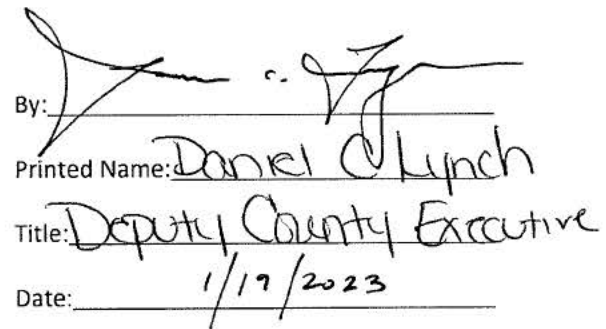 By:
Printed Name: Daniel C Lynch
Title: Deputy County Executive
Date: 1/19/2023